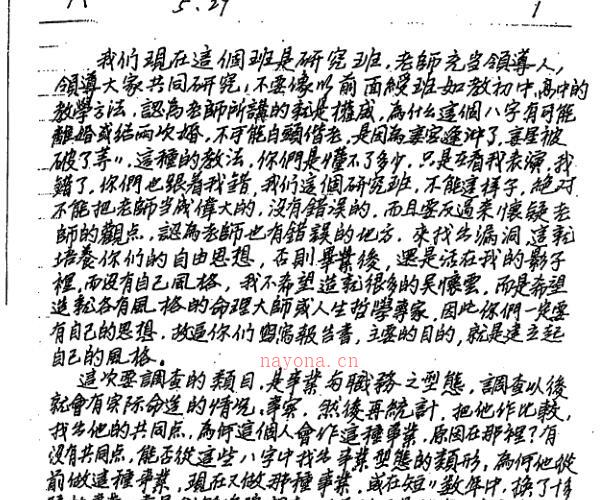 5.29
1
我们現在這個班是研究班，老師充当領導人，
領導大家共同研究，不要像以前面綬班如教初中，高中的
教學方法，認為老師所講的就是權威，為什么這個八字有可能
離婚或結兩次婚，不可能白頭偕老，是因為妻宮逢沖了，妻星被
破了等〃，這種的教法，你們是懂不了多少，只是在看我表演，我
錯了，你們也跟着我錯，我們這個研究班，不能這樣子，絕对
不能把老師当成偉大的，沒有錯誤的，而且要反過来懷疑老
師的觀点，認為老師也有錯誤的地方，來找出漏洞，這就
培養你们的自由思想，否則畢業後，還是活在我的影子
裡，而沒有自己風格，我不希望造就很多的吴懷雲，而是希望
造就各有風格的命理大師或人生哲學專家，因此你們一定要
有自己的思想，故逼你们寫報告書，主要的目的，就是建立起
自己的風格。
這次要調查的類目，是事業与職務之型態，調查以後
就會有实际命造的情況，事案，然後再統計，把他作比較，
找出他的共同点，為何這個人會作這種事業，原因在那裡？有
沒有共同点，能否從這些八字中找出事業型態的類形，為何他從
前做這種事業，現在又做那種事業，或在短〃數年中，換了十係
nayona.cn